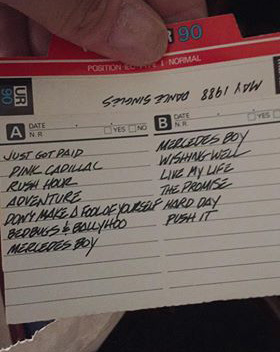 R 90
POSITION IEC TYPE I · NORMAL
UR
90
MAY 1988 DANCE SINGLES
A DATE
N.R. YES NO
JUST GOT PAID
PINK CADILLAC
RUSH HOUR
ADVENTURE
DON'T MAKE A FOOL OF YOURSELF
BEDBUGS & BALLYHOO
MERCEDES BOY
B DATE
N.R. YES NO
MERCEDES BOY
WISHING WELL
LIVE MY LIFE
THE PROMISE
HARD DAY
PUSH IT
UR
90